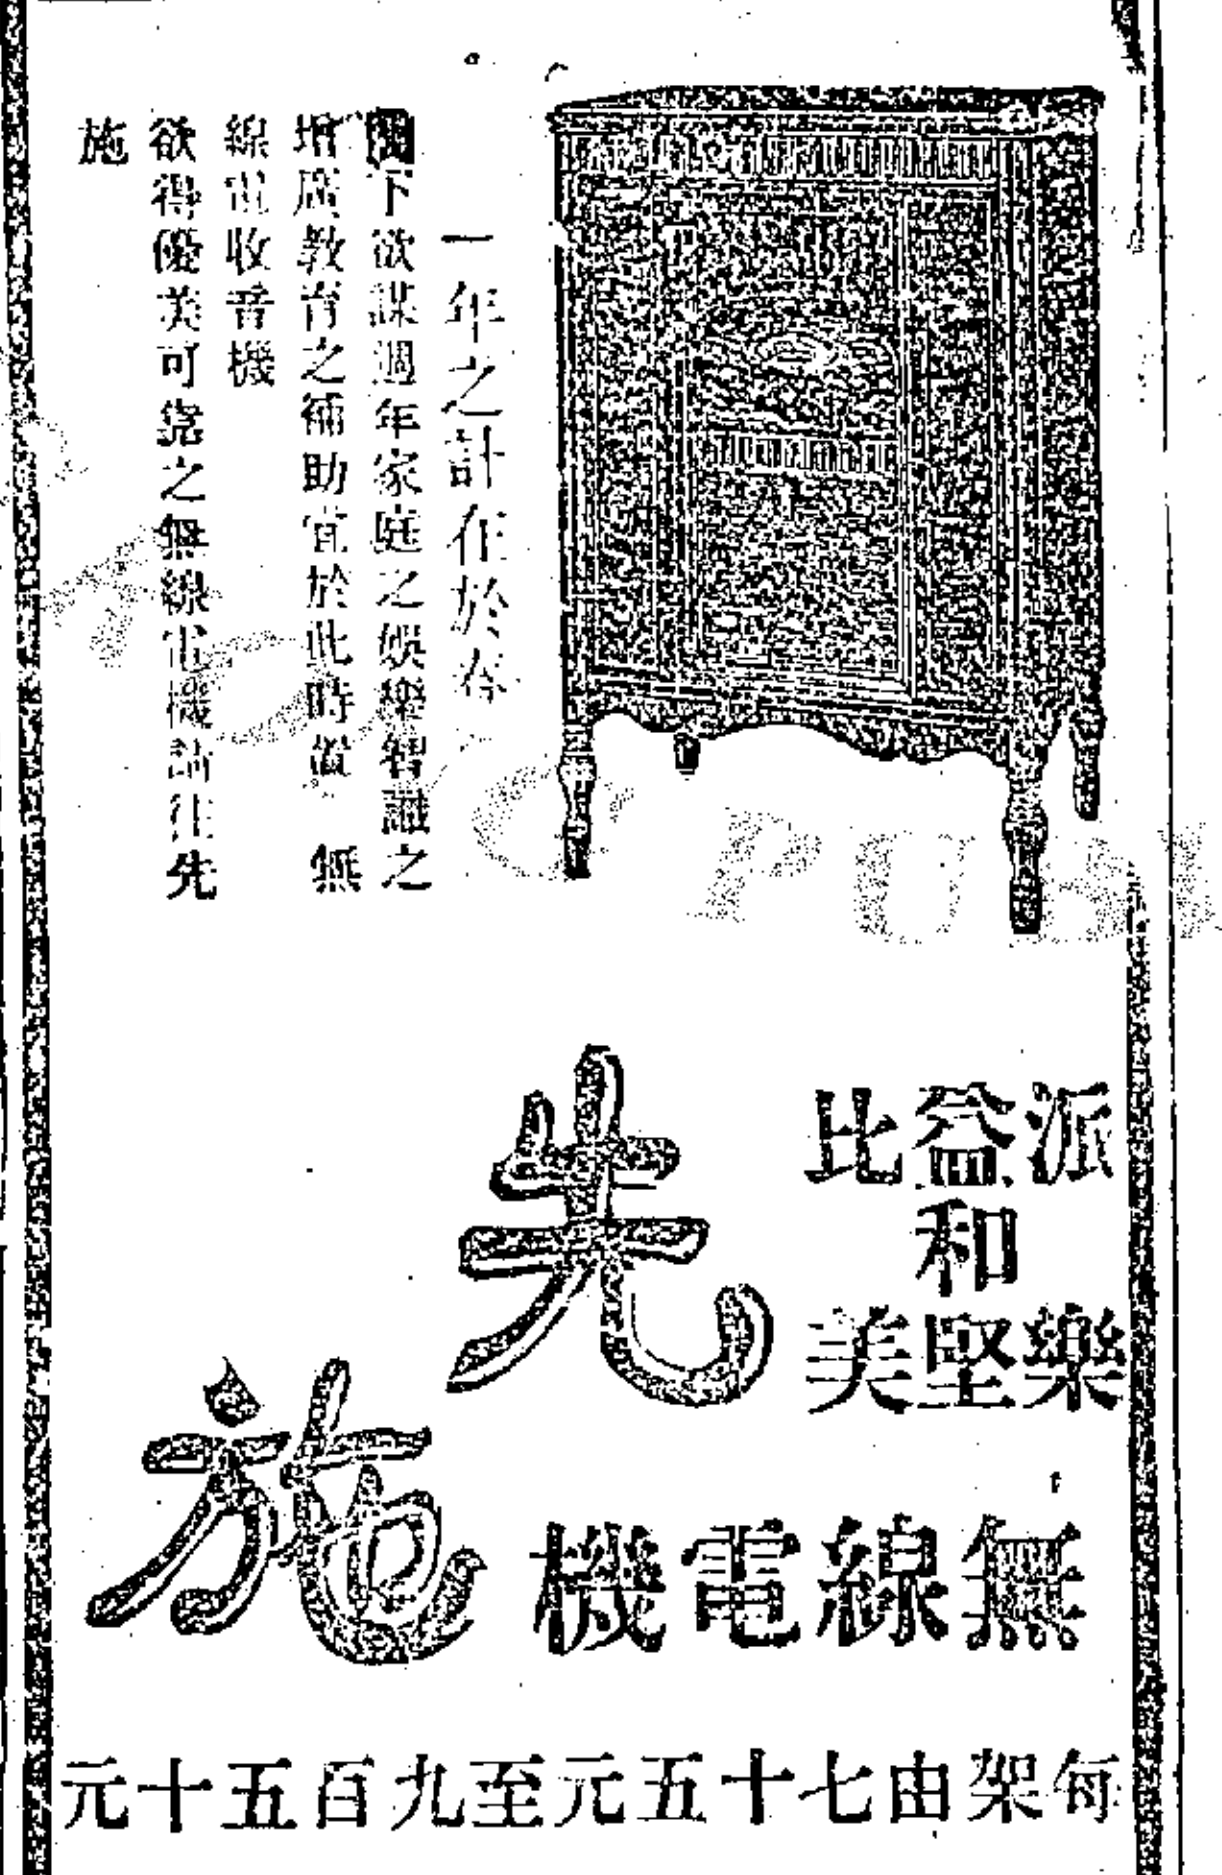 一年之計在於春
閣下欲謀週年家庭之娛樂智識之
增廣教育之補助宜於此時置 無
線電收音機
欲得優美可靠之無線電機請往先
施
派樂
益和堅
比美
先施
無線電機
每架由七十五元至九百五十元